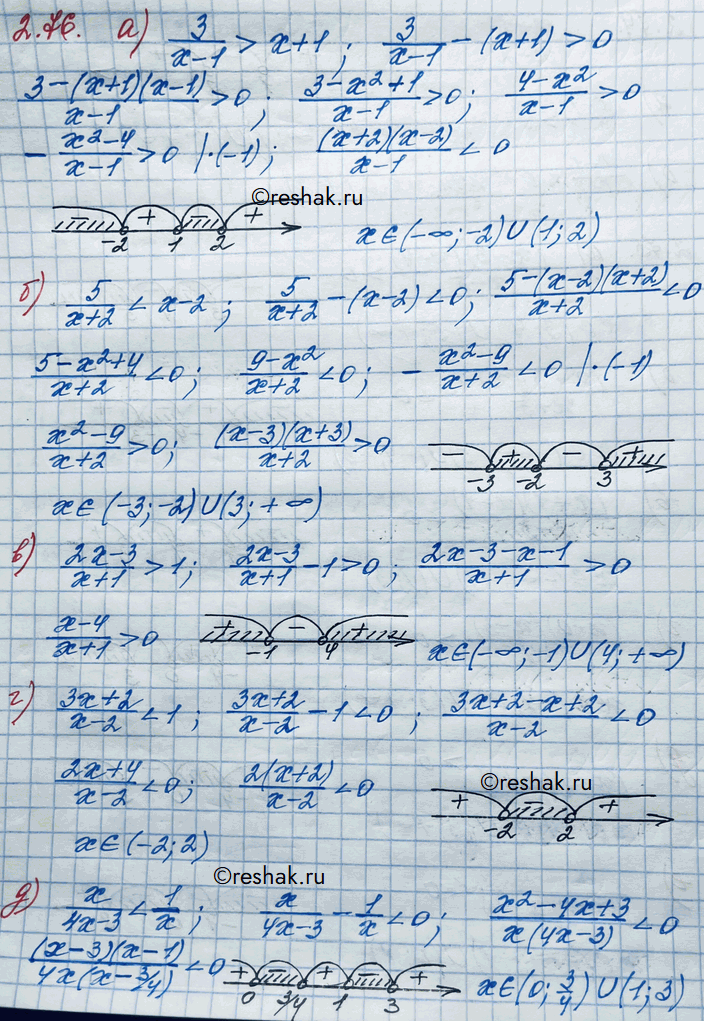 2.76. а) 3/(x-1) > x+1 ; 3/(x-1) - (x+1) > 0
(3-(x+1)(x-1))/(x-1) > 0 ; (3-x²+1)/(x-1) > 0 ; (4-x²)/(x-1) > 0
- (x²-4)/(x-1) > 0 |·(-1) ; ((x+2)(x-2))/(x-1) < 0
©reshak.ru
+ − +
-2 1 2
x∈(-∞;-2)∪(1;2)
б) 5/(x+2) < x-2 ; 5/(x+2) - (x-2) < 0 ; (5-(x-2)(x+2))/(x+2) < 0
(5-x²+4)/(x+2) < 0 ; (9-x²)/(x+2) < 0 ; - (x²-9)/(x+2) < 0 |·(-1)
(x²-9)/(x+2) > 0 ; ((x-3)(x+3))/(x+2) > 0
− + − +
-3 -2 3
x∈(-3;-2)∪(3;+∞)
в) (2x-3)/(x+1) > 1 ; (2x-3)/(x+1) - 1 > 0 ; (2x-3-x-1)/(x+1) > 0
(x-4)/(x+1) > 0
+ − +
-1 4
x∈(-∞;-1)∪(4;+∞)
г) (3x+2)/(x-2) < 1 ; (3x+2)/(x-2) - 1 < 0 ; (3x+2-x+2)/(x-2) < 0
(2x+4)/(x-2) < 0 ; (2(x+2))/(x-2) < 0
©reshak.ru
+ +
-2 2
x∈(-2;2)
©reshak.ru
д) x/(4x-3) < 1/x ; x/(4x-3) - 1/x < 0 ; (x²-4x+3)/(x(4x-3)) < 0
((x-3)(x-1))/(4x(x-3/4)) < 0
+ − + − +
0 3/4 1 3
x∈(0;3/4)∪(1;3)